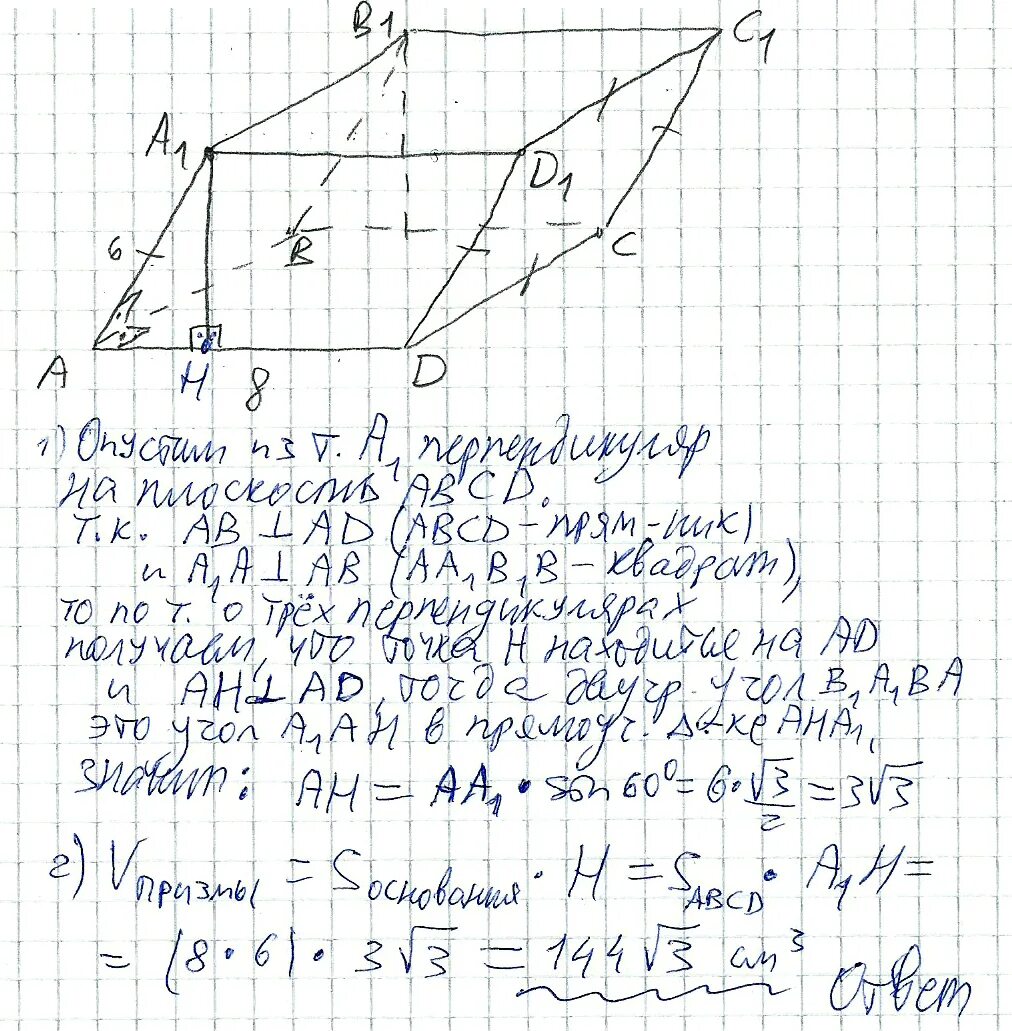 B1
C1
A1
D1
6
B
C
A
H
8
D
1) Опустим из т. A1 перпендикуляр
на плоскость ABCD.
Т.к. AB ⊥ AD (ABCD – прям-ник)
и A1A ⊥ AB (AA1B1B – квадрат),
то по т. о трёх перпендикулярах
получаем, что точка H находится на AD
и AH ⊥ AD, тогда двугр. угол B1A1BA
это угол A1AH в прямоуг. Δ-ке AHA1,
значит: AH = AA1 • sin 60° = 6 • √3/2 = 3√3
2) Vпризмы = Sоснования • H = SABCD • A1H =
= (8 • 6) • 3√3 = 144√3 см³
Ответ